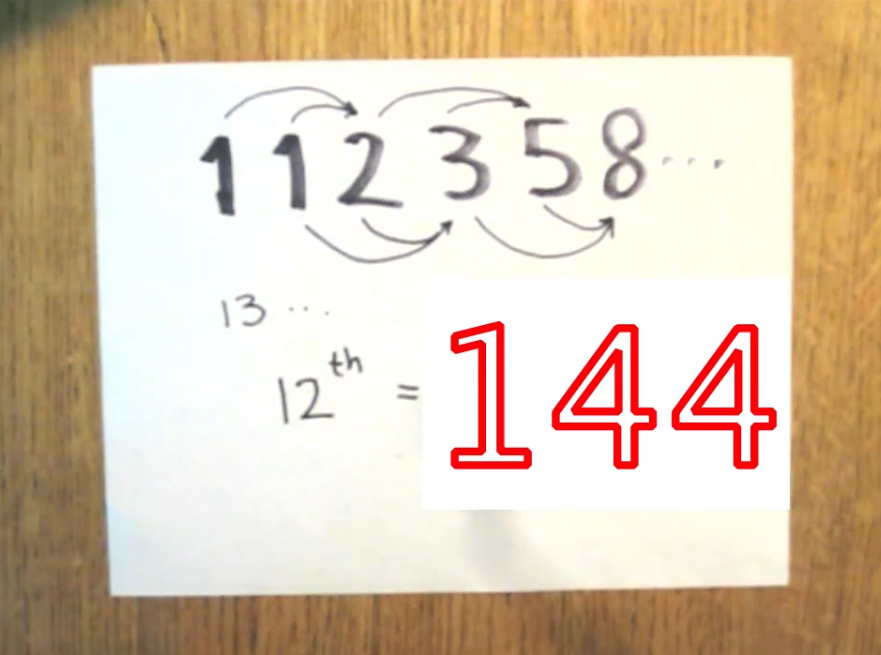 1 1 2 3 5 8 ...
13 ...
12th = 144